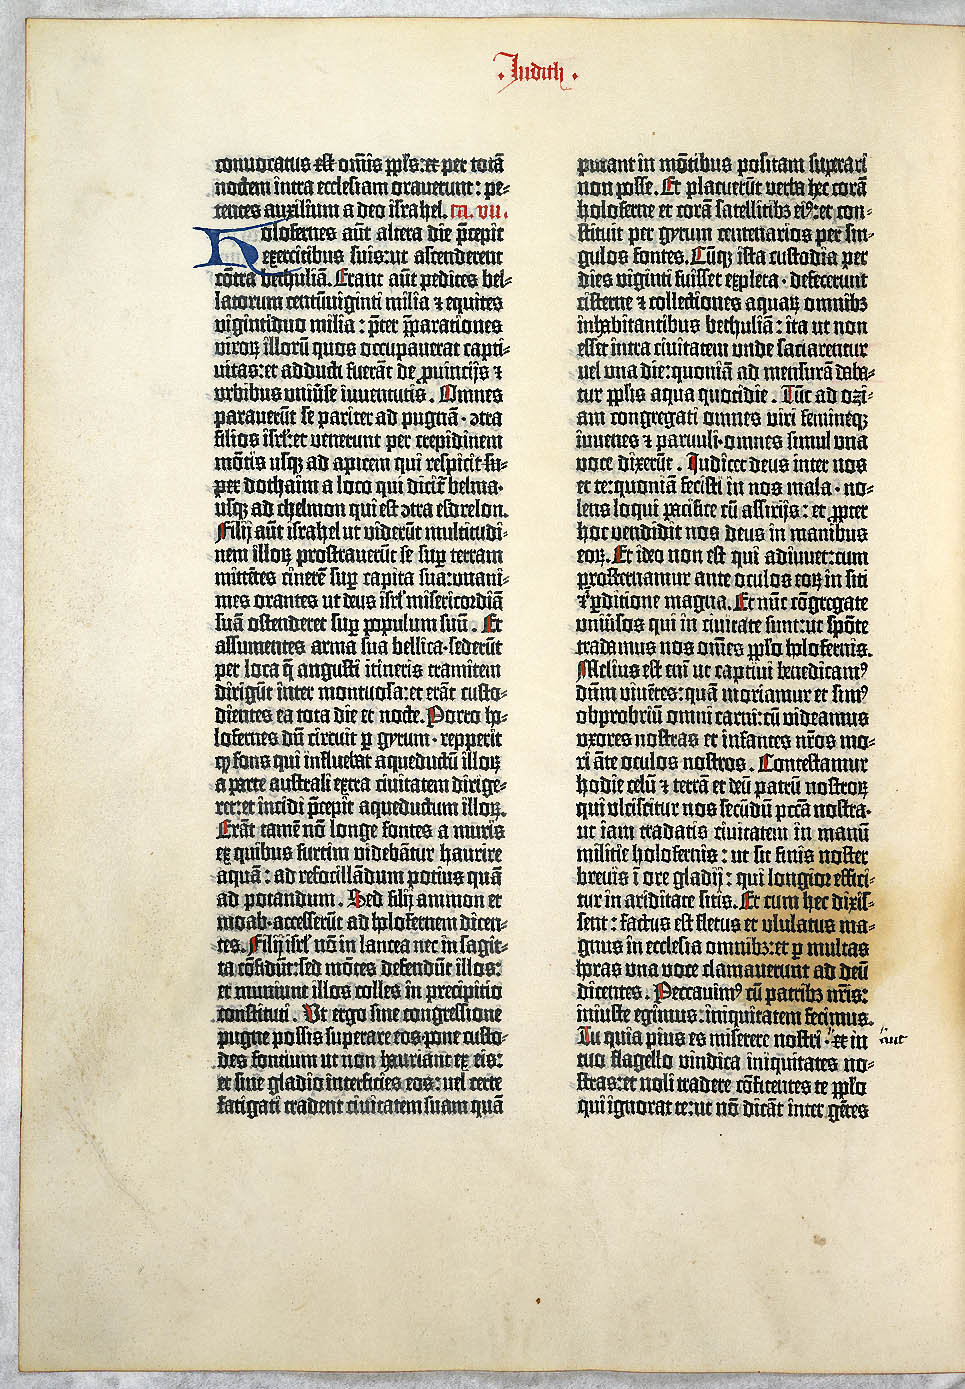 · Iudith ·
conuocatus est om̄is pp̄ls: et per totā
noctem intra ecclesiam orauerunt: pe-
tentes auxilium a deo israhel. ca. vii.
Holofernes aūt altera die p̄cepit
exercitibus suis: ut ascenderent
cōtra bethuliā. Erant aūt pedites bel-
latorum centūuiginti milia ⁊ equites
vigintiduo milia: p̄ter p̄parationes
viroꝝ illorū quos occupauerat capti-
uitas: et adducti fuerāt de ꝓuincijs ⁊
urbibus uniuˢse iuuentutis. Omnes
parauerūt se pariter ad pugnā · ↄtra
filios isrl̄: et venerunt per crepidinem
mōtis usqꝫ ad apicem qui respicit su-
per dothaim a loco qui dicit᷑ belma·
usqꝫ ad chelmon qui est ↄtra esdrelon.
Filij aūt israhel ut viderūt multitudi-
nem illoꝝ prostrauerūt se suꝑ terram
mittētes cinerē suꝑ capita sua: vnani-
mes orantes ut deus isrl̄ misericordiā
suā ostenderet suꝑ populum suū. Et
assumentes arma sua bellica · sederūt
per loca q̄ angusti itineris tramitem
dirigūt inter montuosa: et erāt custo-
dientes ea tota die et nocte. Porro ho-
lofernes dū circuit ꝑ gyrum · repperit
ꝙ fons qui influebat aqueductū illoꝝ
a parte australi extra ciuitatem dirige-
ret: et incidi p̄cepit aqueductum illoꝝ.
Erāt tamē nō longe fontes a muris
ex quibus furtim videbātur haurire
aquā: ad refocillādum potius quā
ad potandum. Sed filij ammon et
moab · accesserūt ad holofernem dicen-
tes. Filij isrl̄ nō in lancea nec in sagit-
ta cōfidūt: sed mōtes defendūt illos:
et muniunt illos colles in precipitio
constituti. Ut ergo sine congressione
pugne possis superare eos · pone custo-
des fontium ut non hauriant ex eis:
et sine gladio interficies eos: uel certe
fatigati tradent ciuitatem suam quā
putant in mōtibus positam superari
non posse. Et placuerūt verba hec corā
holoferne et corā satellitibꝫ eiꝰ: et con-
stituit per gyrum centenarios per sin-
gulos fontes. Cūqꝫ ista custodia per
dies viginti fuisset expleta · defecerunt
cisterne ⁊ collectiones aquaꝝ omnibꝫ
inhabitantibus bethuliā: ita ut non
esset intra ciuitatem unde saciarentur
uel una die: quoniā ad mensurā daba-
tur pp̄lis aqua quotidie. Tūc ad ozi-
am congregati omnes viri femineqꝫ
iuuenes ⁊ paruuli · omnes simul vna
voce dixerūt. Iudicet deus inter nos
et te: quoniā fecisti in nos mala · no-
lens loqui pacifice cū assirijs: et ꝓpter
hoc vendidit nos deus in manibus
eoꝝ. Et ideo non est qui adiuuet: cum
prosternamur ante oculos eoꝝ in siti
et ꝑditione magna. Et nūc cōgregate
uniuˢsos qui in ciuitate sunt: ut spōte
tradamus nos om̄es pp̄lo holofernis.
Melius est eni᷑ ut captiui benedicamꝰ
dn̄m viuētes: quā moriamur et simꝰ
obprobriū omni carni: cū videamus
uxores nostras et infantes nr̄os mo-
ri āte oculos nostros. Contestamur
hodie celū ⁊ terrā et deū patrū nostroꝝ
qui ulciscitur nos secūdū pctā̄ nostra·
ut iam tradatis ciuitatem in manū
militie holofernis: ut sit finis noster
breuis ī ore gladij: qui longior effici-
tur in ariditate sitis. Et cum hec dixis-
sent: factus est fletus et ululatus ma-
gnus in ecclesia omnibꝫ: et ꝑ multas
horas una voce clamauerunt ad deū
dicentes. Peccauimꝰ cū patribꝫ nr̄is:
iniuste egimus: iniquitatem fecimus.
Tu quia pius es miserere nostri · " et in " aut
tuo flagello vindica iniquitates no-
stras: et noli tradere cōfitentes te pp̄lo
qui ignorat te: ut nō dicāt inter gētes